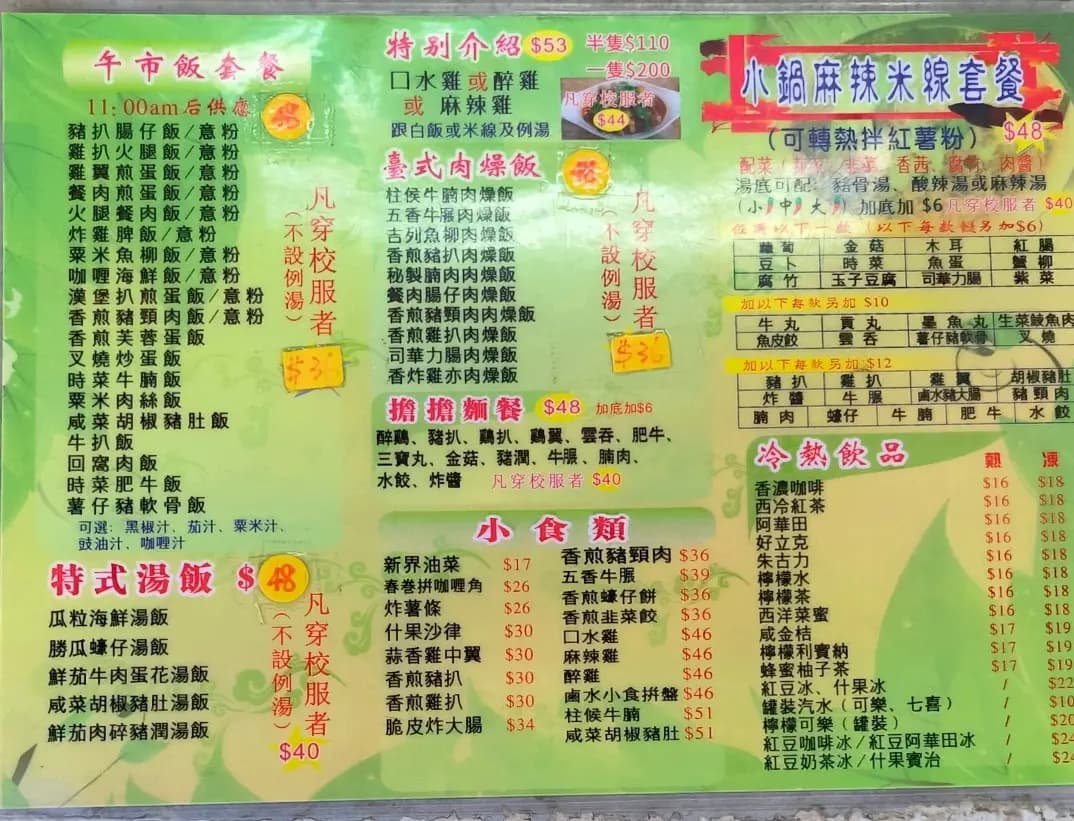 午市飯套餐
11:00am后供應
豬扒腸仔飯/意粉
雞扒火腿飯/意粉
雞翼煎蛋飯/意粉
餐肉煎蛋飯/意粉
火腿餐肉飯/意粉
炸雞脾飯/意粉
粟米魚柳飯/意粉
咖喱海鮮飯/意粉
漢堡扒煎蛋飯/意粉
香煎豬頸肉飯/意粉
香煎芙蓉蛋飯
叉燒炒蛋飯
時菜牛腩飯
粟米肉絲飯
咸菜胡椒豬肚飯
牛扒飯
回窩肉飯
時菜肥牛飯
薯仔豬軟骨飯
可選: 黑椒汁、茄汁、粟米汁、
豉油汁、咖喱汁
凡穿校服者
(不設例湯)
特式湯飯 $48
瓜粒海鮮湯飯
勝瓜蠔仔湯飯
鮮茄牛肉蛋花湯飯
咸菜胡椒豬肚湯飯
鮮茄肉碎豬潤湯飯
凡穿校服者
(不設例湯)
$40
特別介紹 $53 半隻$110
一隻$200
口水雞或醉雞
或 麻辣雞
跟白飯或米線及例湯
凡穿校服者
$44
臺式肉燥飯
柱侯牛腩肉燥飯
五香牛𦟌肉燥飯
吉列魚柳肉燥飯
香煎豬扒肉燥飯
秘製腩肉肉燥飯
餐肉腸仔肉燥飯
香煎豬頸肉肉燥飯
香煎雞扒肉燥飯
司華力腸肉燥飯
香炸雞亦肉燥飯
凡穿校服者
(不設例湯)
$36
擔擔麵餐 $48 加底加$6
醉鷄、豬扒、鷄扒、鷄翼、雲吞、肥牛、
三寶丸、金菇、豬潤、牛𦟌、腩肉、
水餃、炸醬 凡穿校服者 $40
小食類
新界油菜 $17
春巻拼咖喱角 $26
炸薯條 $26
什果沙律 $30
蒜香雞中翼 $30
香煎豬扒 $30
香煎雞扒 $30
脆皮炸大腸 $34
香煎豬頸肉 $36
五香牛𦟌 $39
香煎蠔仔餅 $36
香煎韭菜餃 $36
口水雞 $46
麻辣雞 $46
醉雞 $46
鹵水小食拼盤 $46
柱候牛腩 $51
咸菜胡椒豬肚 $51
小鍋麻辣米線套餐
(可轉熱拌紅薯粉) $48
配菜 韭菜 香茜 腐竹 肉醬)
湯底可配: 豬骨湯、酸辣湯或麻辣湯
(小 中 大 ) 加底加 $6 凡穿校服者 $40
任選以下一款 (以下每款髄另加$6)
蘿蔔 金菇 木耳 紅腸
豆卜 時菜 魚蛋 蟹柳
腐竹 玉子豆腐 司華力腸 紫菜
加以下每款另加 $10
牛丸 貢丸 墨魚丸 生菜鯪魚肉
魚皮餃 雲吞 薯仔豬軟骨 叉燒
加以下每款另加 $12
豬扒 雞扒 雞翼 胡椒豬肚
炸醬 牛𦟌 鹵水豬大腸 豬頸肉
腩肉 蠔仔 牛腩 肥牛 水餃
冷熱飲品 熱 凍
香濃咖啡 $16 $18
西冷紅茶 $16 $18
阿華田 $16 $18
好立克 $16 $18
朱古力 $16 $18
檸檬水 $16 $18
檸檬茶 $16 $18
西洋菜蜜 $16 $18
咸金桔 $17 $19
檸檬利賓納 $17 $19
蜂蜜柚子茶 $17 $19
紅豆冰、什果冰 / $22
罐裝汽水(可樂、七喜) / $10
檸檬可樂(罐裝) / $20
紅豆咖啡冰/紅豆阿華田冰 / $24
紅豆奶茶冰/什果賓治 / $24